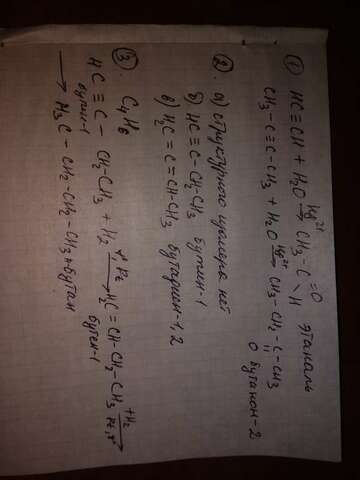 ① HC≡CH + H₂O →(Hg²⁺) CH₃-C=O
\ H этаналь
CH₃-C≡C-CH₃ + H₂O →(Hg²⁺) CH₃-CH₂-C-CH₃
=
O бутанон-2
② а) структурного изомера нет
б) HC≡C-CH₂CH₃ бутин-1
в) H₂C=C=CH-CH₃ бутадиен-1,2
③. C₄H₆
HC≡C-CH₂-CH₃ + H₂ →(t° Pt) HC=CH-CH₂-CH₃ →(+H₂ Pt, t°)
бутин-1 бутен-1
→ H₃C-CH₂-CH₂-CH₃ н-бутан